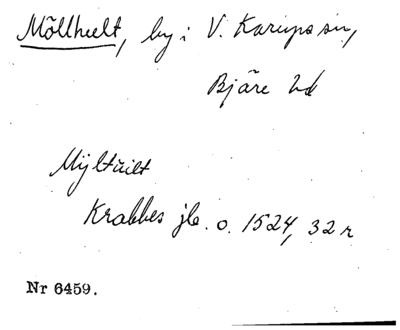 Möllhult, by i V. Karups sn,
Bjäre hd
Myltuilt
Krabbes jb. o. 1524, 32 r
Nr 6459.